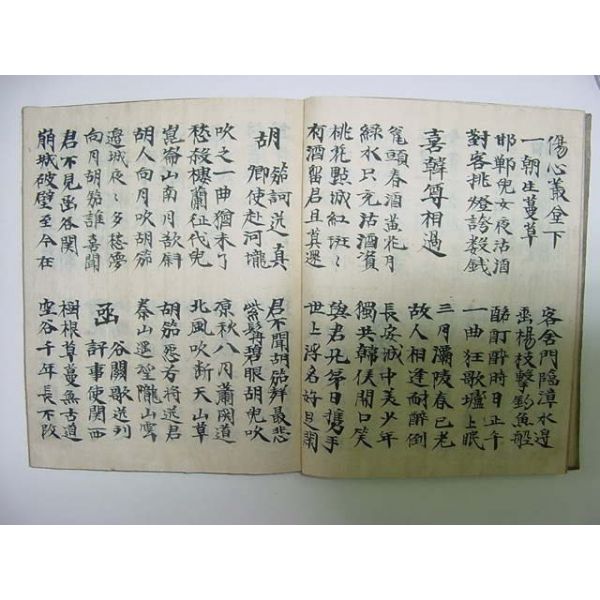 傷心叢臺下
一朝生蔓草
客舍門臨漳水邊
垂楊枝擊釣魚船
邯鄲兒女夜沽酒
對客挑燈誇数錢
酩酊醉時日正午
一曲狂歌壚上眠
喜韓尊相過
三月灞陵春已老
故人相逢耐醉倒
甕頭春酒黃花月
綠水只充沽酒資
長安城中美少年
獨共韓侯開口笑
桃花點城紅斑〻
有酒留君且莫還
與君兄弟日攜手
世上浮名好是閑
胡笳訶送真
卿使赴河隴
君不聞胡笳聲最悲
紫髯碧眼胡兒吹
吹之一曲猶未了
愁殺樓蘭征伐兒
涼秋八月蕭関道
北風吹断天山草
崑崙山南月欲斜
胡人向月吹胡笳
胡笳怨兮將送君
秦山遥望隴山雲
邊城夜〻多愁夢
向月胡笳誰喜聞
函谷関歌送列
評事使関西
君不見函谷関
崩城破壁至今在
樹根草蔓魚古道
空谷千年長不改